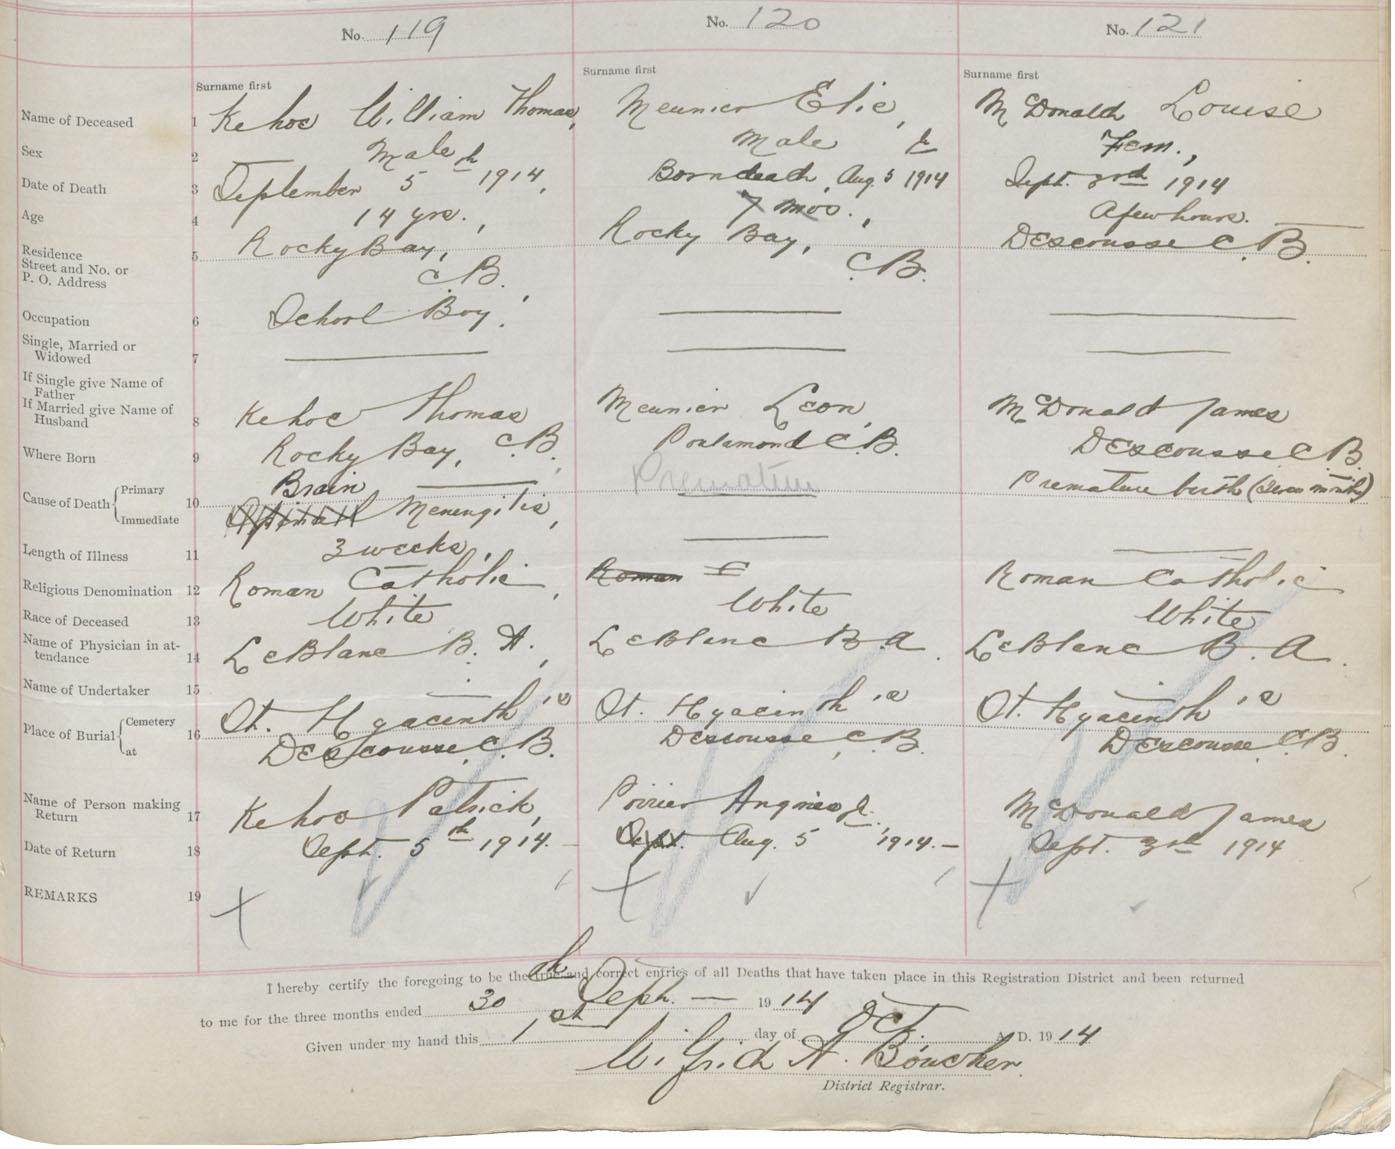 No. 119
No. 120
No. 121
Surname first
Surname first
Surname first
Name of Deceased 1 Kehoe William Thomas, Meunier Elie, McDonald Louise
Sex 2 Male Male Fem.,
Date of Death 3 September 5th 1914, Born death, Aug. 5th 1914 Sept. 3rd 1914
Age 4 14 yrs., 7 mos., A few hours.
Residence
Street and No. or
P. O. Address 5 Rocky Bay, C B., Rocky Bay, C. B. Descousse C. B.
Occupation 6 School Boy.
Single, Married or
Widowed 7
If Single give Name of
Father
If Married give Name of
Husband 8 Kehoe Thomas Meunier Leon, McDonald James
Where Born 9 Rocky Bay, C. B., Poulamond C. B. Descousse C. B.
Cause of Death Primary Brain Premature Premature birth (Seven months)
Immediate 10 Spinal Meningitis,
Length of Illness 11 3 weeks,
Religious Denomination 12 Roman Catholic, Roman Roman Catholic
Race of Deceased 13 White White White
Name of Physician in at-
tendance 14 LeBlanc B. A., LeBlanc B. A. LeBlanc B. A.
Name of Undertaker 15
Place of Burial Cemetery 16 St. Hyacinth's St. Hyacinth's St. Hyacinth's
at Descousse, C. B. Descousse, C. B. Descousse C. B.
Name of Person making
Return 17 Kehoe Patrick, Poirier McDonald James
Date of Return 18 Sept. 5th 1914. Sept. Aug. 5 1914. Sept. 3rd 1914
REMARKS 19
I hereby certify the foregoing to be the true and correct entries of all Deaths that have taken place in this Registration District and been returned
to me for the three months ended 30th Sept. 1914
Given under my hand this 1st day of Oct. A. D. 1914
Wilfrid A. Boucher.
District Registrar.